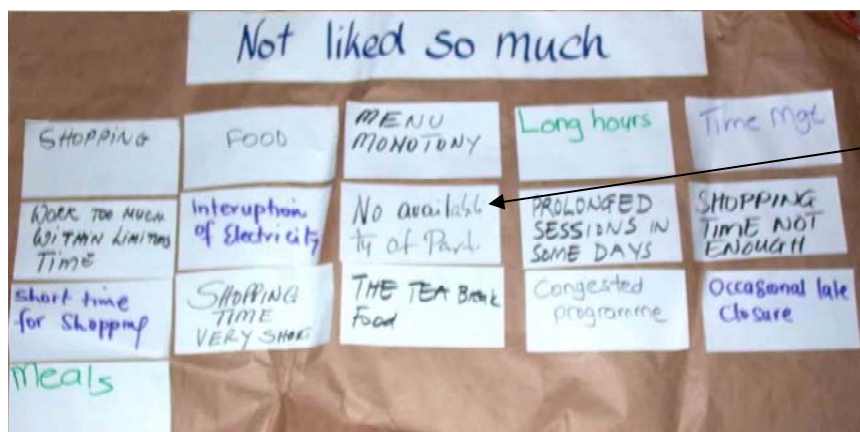 Not liked so much
SHOPPING
FOOD
MENU
MONOTONY
Long hours
Time Mgt
WORK TOO MUCH
WITHIN LIMITED
TIME
Interuption
of Electricity
No availabili
ty of
PROLONGED
SESSIONS IN
SOME DAYS
SHOPPING
TIME NOT
ENOUGH
Short time
for Shopping
SHOPPING
TIME
VERY SHORT
THE TEA Break
Food
Congested
programme
Occasional late
Closure
Meals